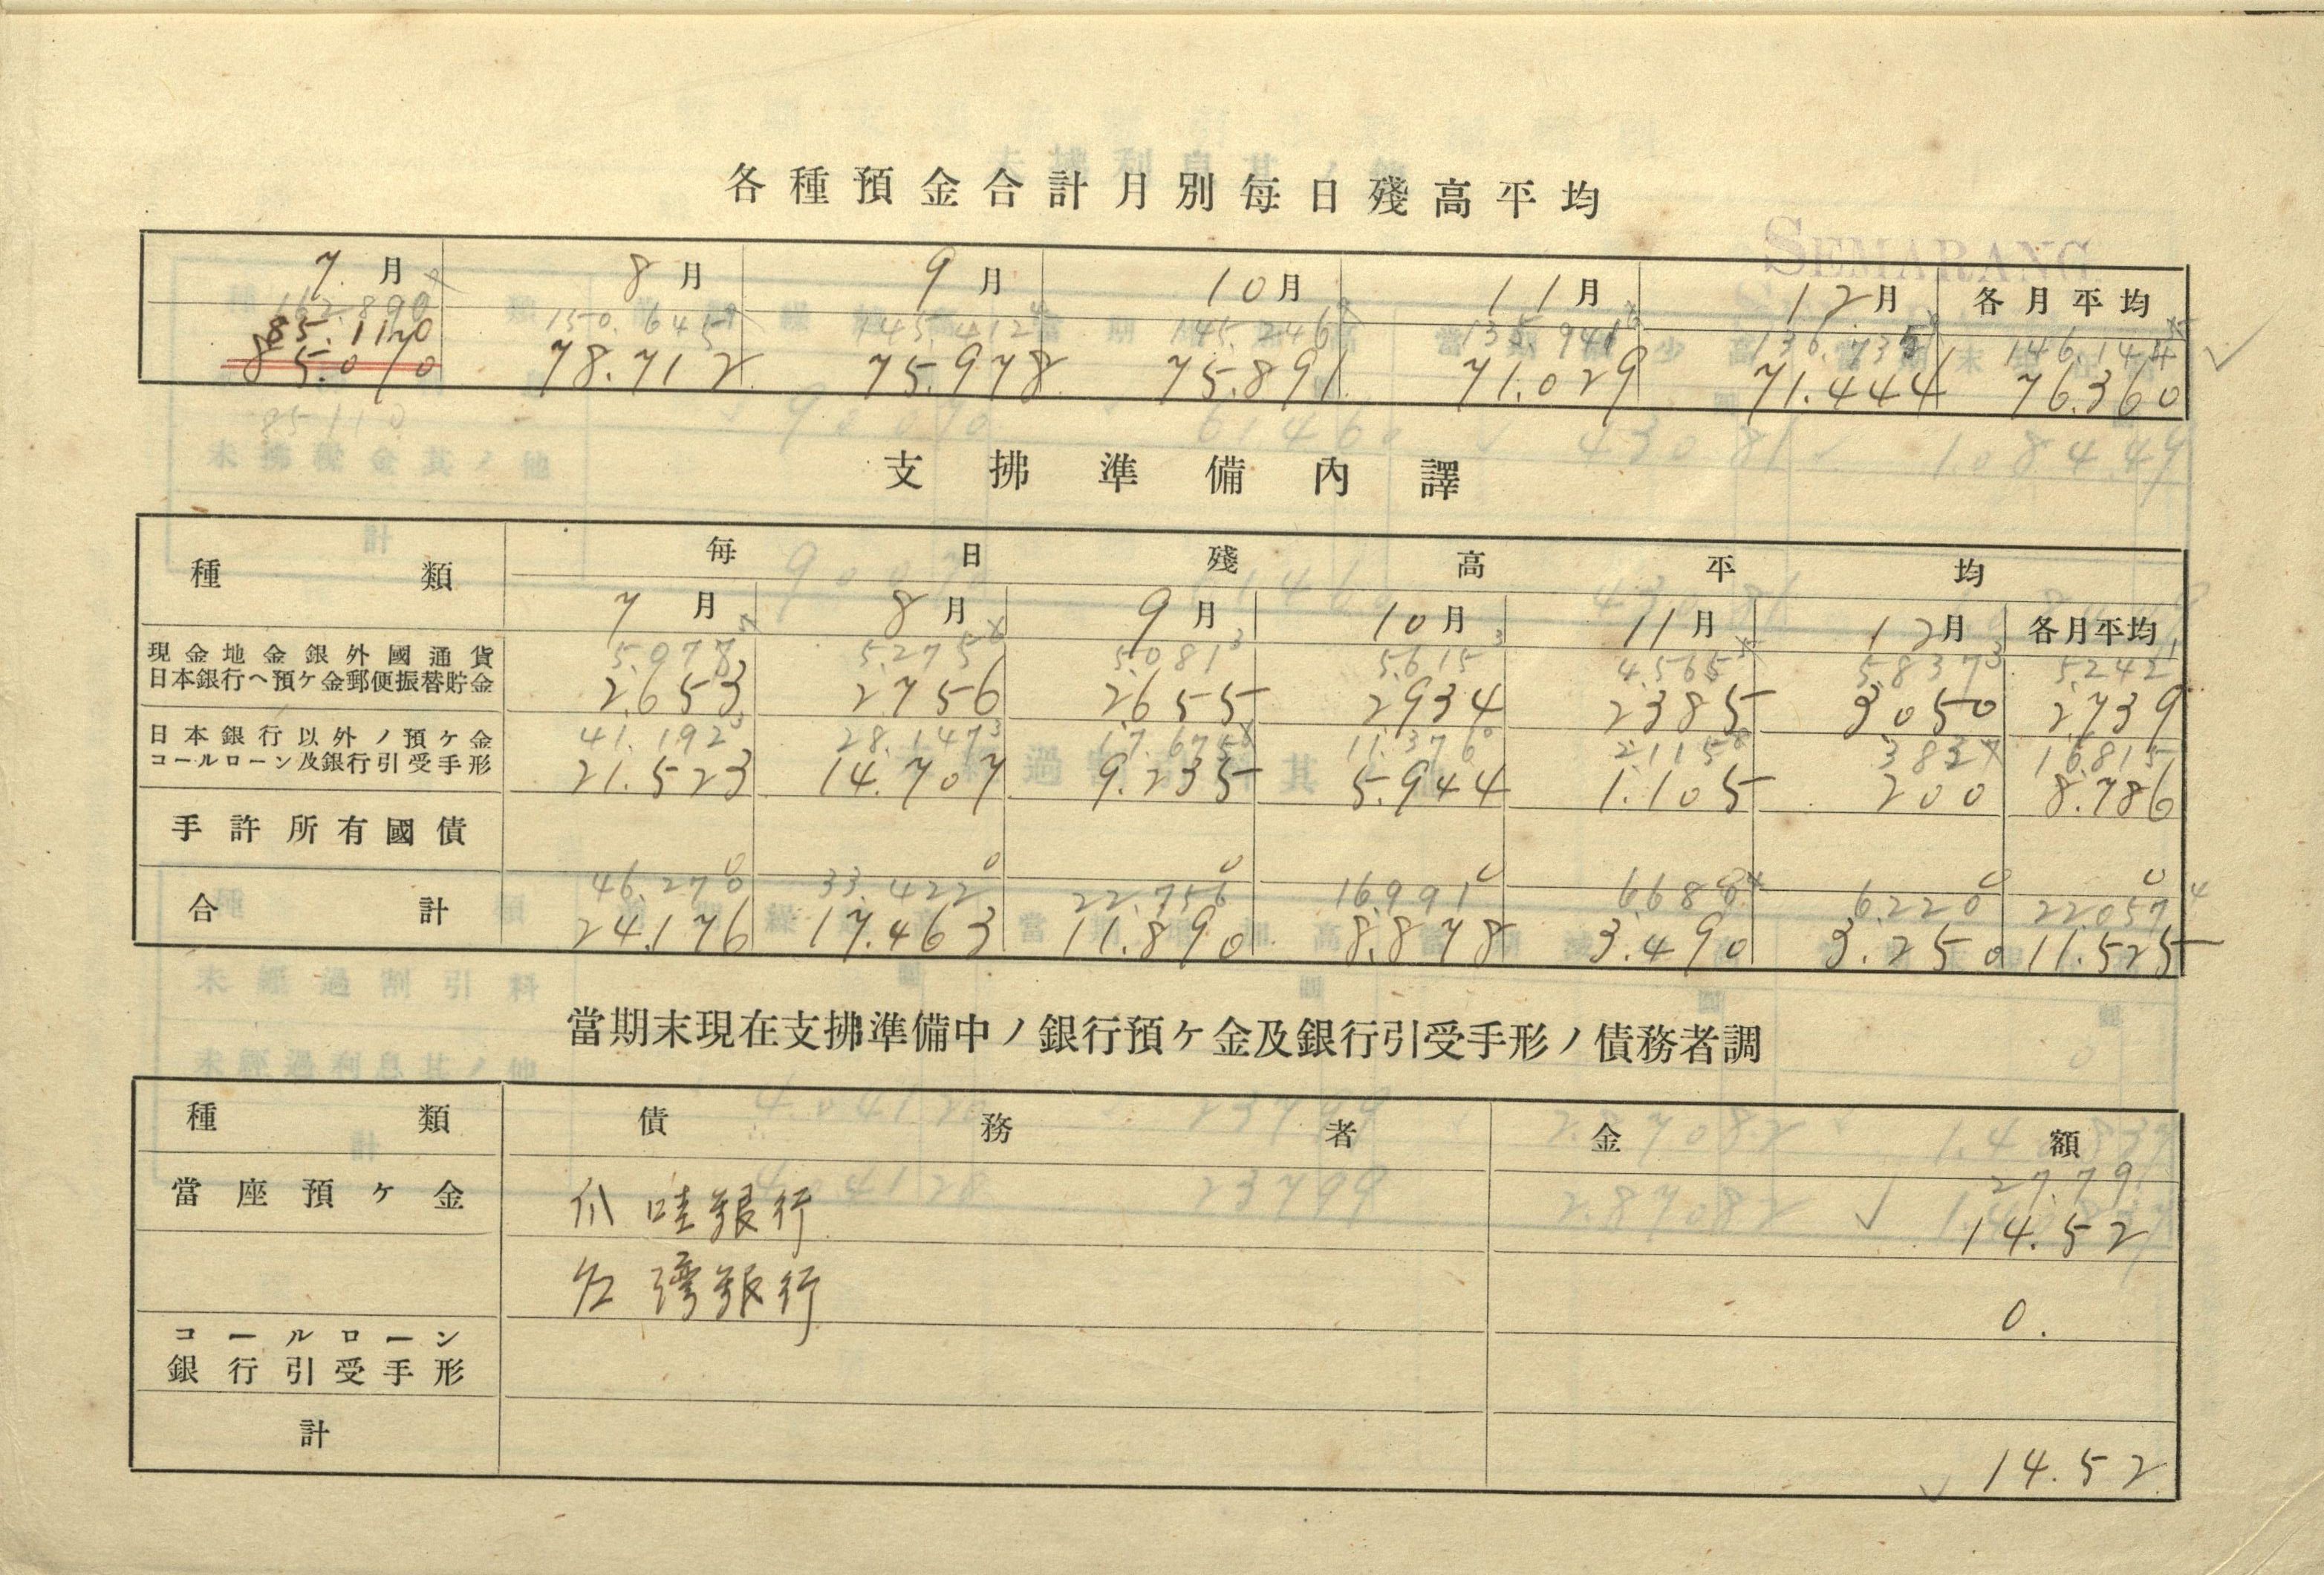 各種預金合計月別每日殘高平均
SEMARANG
7月 8月 9月 10月 11月 12月 各月平均
162.890 150.645 145.412 145.246 135.941 136.735 146.144
85.110 78.712 75.978 75.891 71.029 71.444 76.360
85.070
85110
支拂準備內譯
種類 每日殘高平均
7月 8月 9月 10月 11月 12月 各月平均
現金地金銀外國通貨 5.077 5.275 5.081 5.615 4.565 5.837 5.242
日本銀行へ預ケ金郵便振替貯金 2.653 2756 2.655 2.934 2.385 3.050 2.739
日本銀行以外ノ預ケ金 41.192 28.147 17.675 11.376 2.115 382 16.815
コールローン及銀行引受手形 21.523 14.707 9.235 5.944 1.105 200 8.786
手許所有國債
合計 46.270 33.422 22.756 16.991 6.680 6.220 22.057
24.176 17.463 11.890 8.878 3.490 3.250 11.525
當期末現在支拂準備中ノ銀行預ケ金及銀行引受手形ノ債務者調
種類 債務者 金額
27.79
當座預ケ金 爪哇銀行 14.52
台灣銀行 0.
コールローン
銀行引受手形
計 14.52